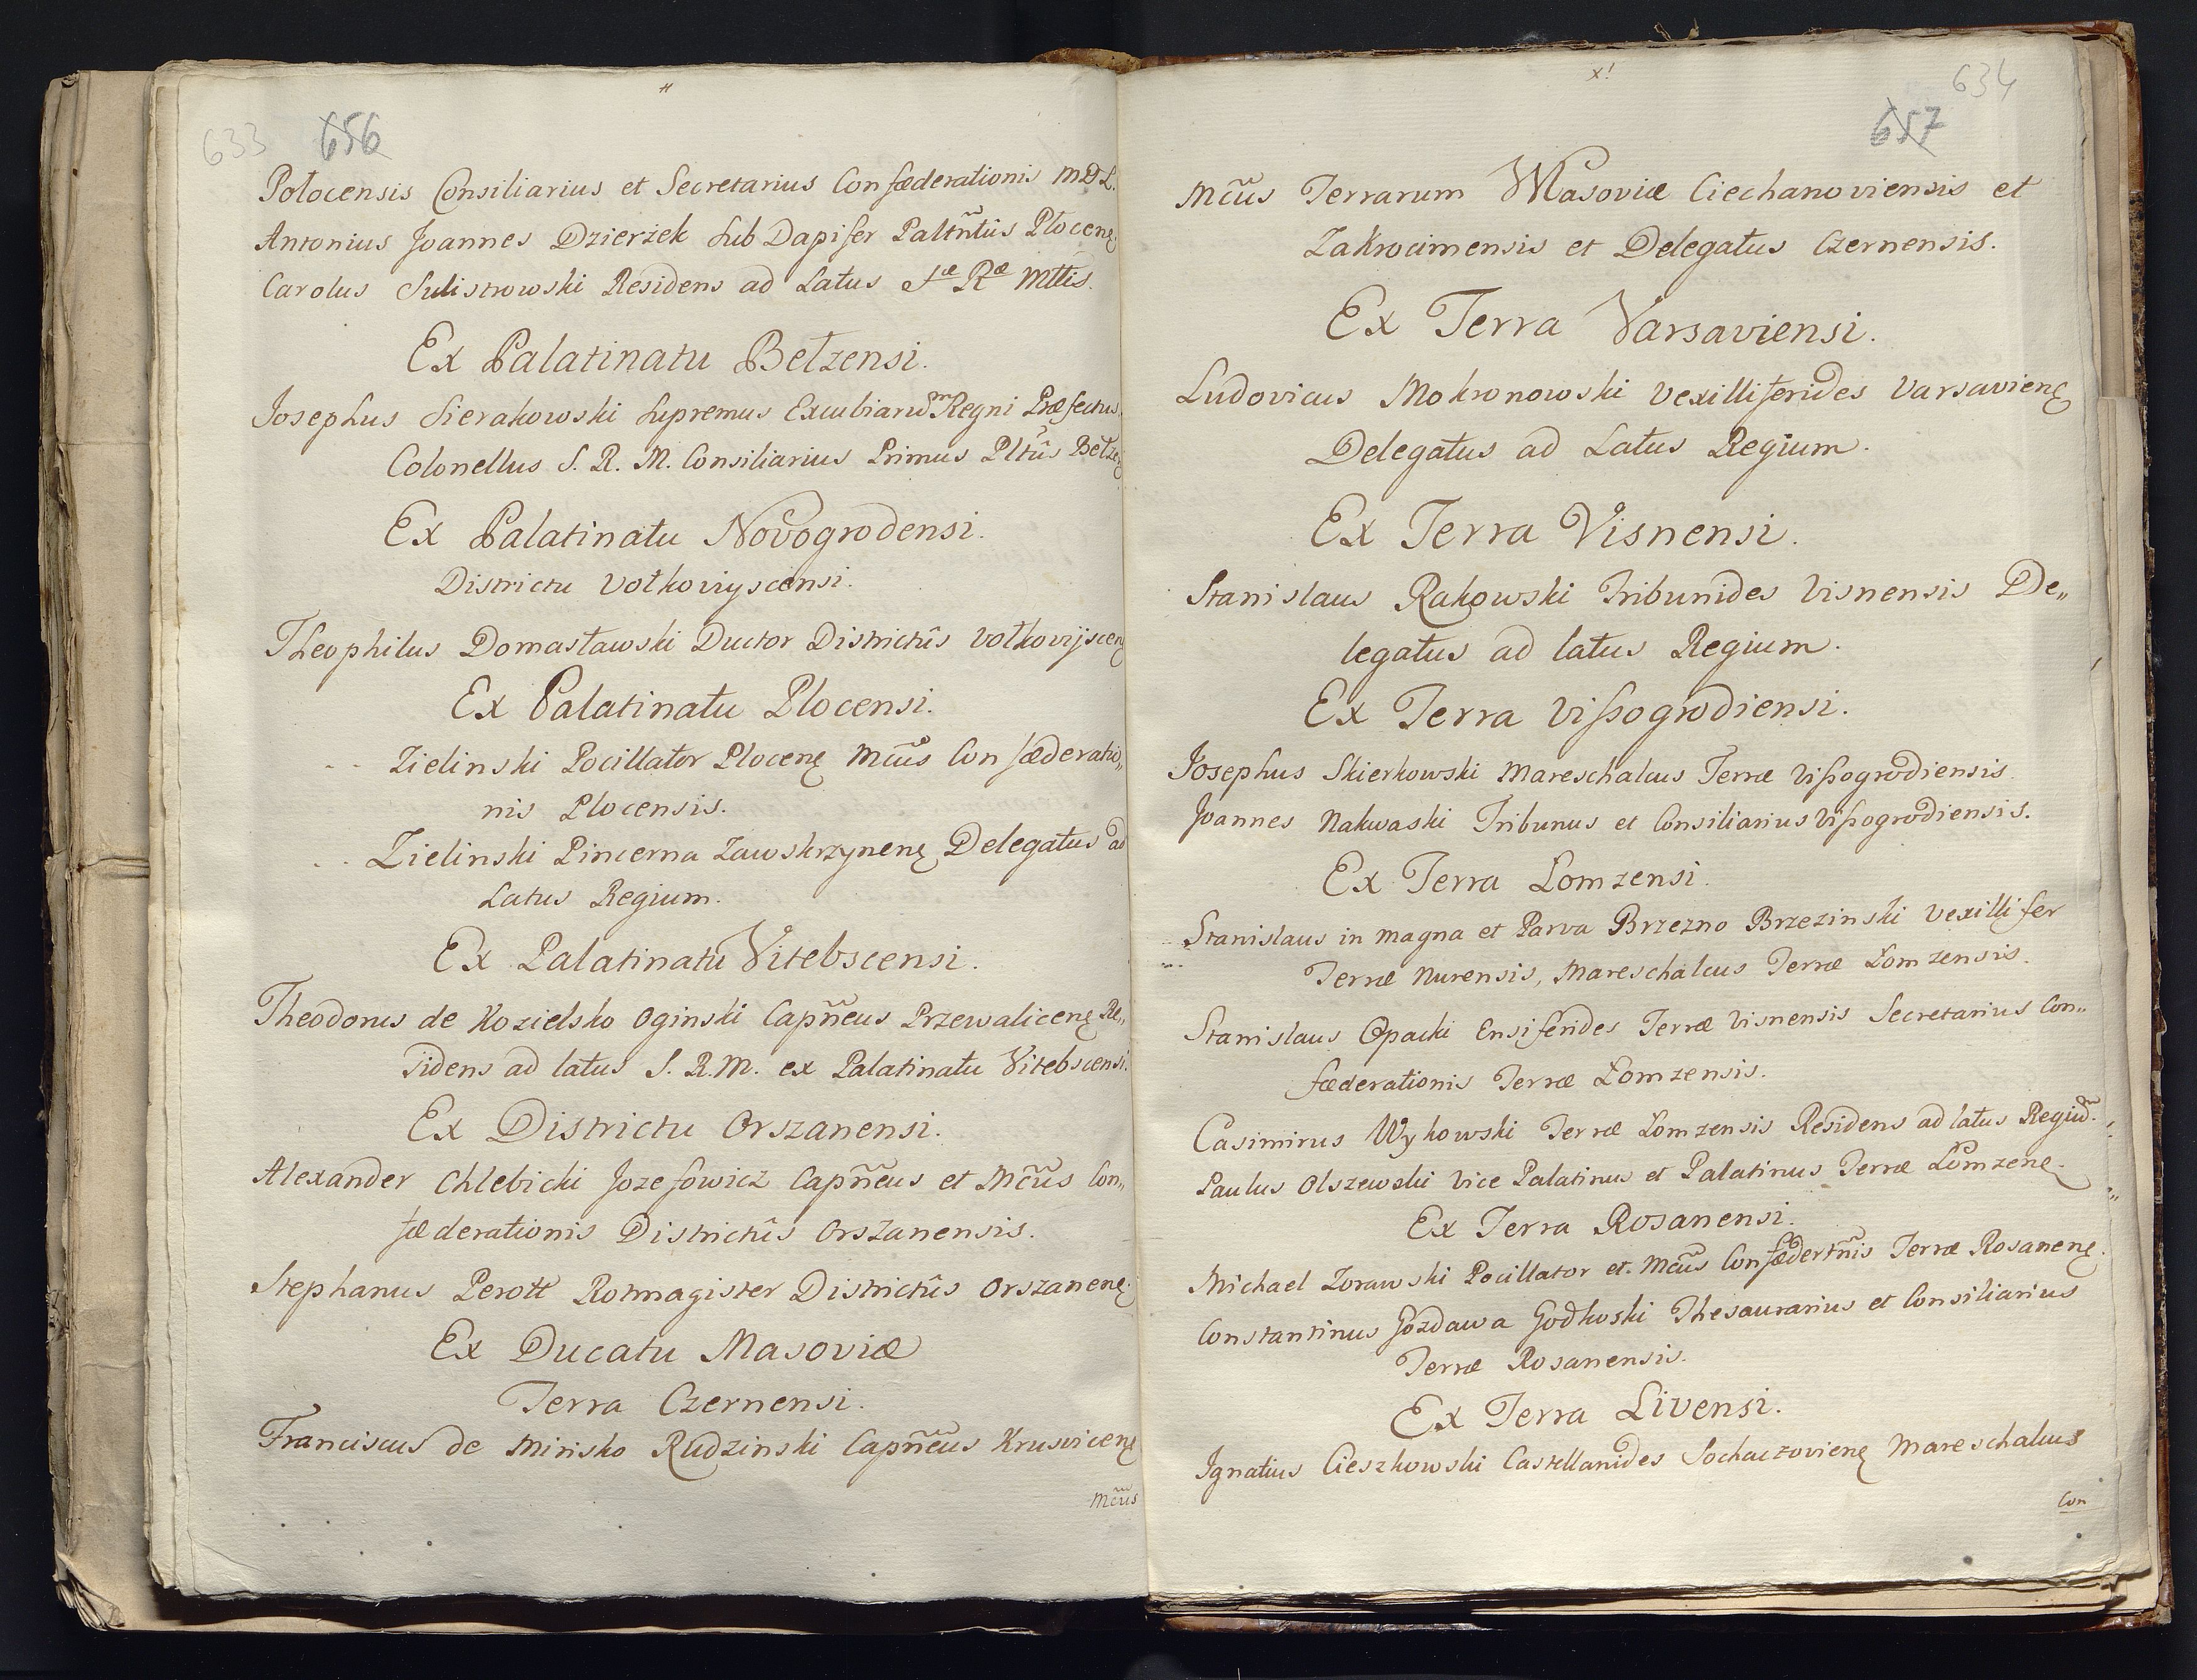 633 656
Połocensis Consiliarius et Secretarius Confæderationis M.D.L.
Antonius Joannes Dzierżek Sub Dapifer Paltñtûs Płocenę
Carolus Sulistrowski Residens ad Latus Sæ Ræ Mttis.
Ex Palatinatu Bełzensi.
Josephus Sierakowski Supremus Excubiarum Regni Præfectus,
Colonellus S. R. M. Consiliarius Primus Pltûs Bełzeņ
Ex Palatinatu Novogrodensi.
Districtu Vołkovijscensi.
Theophilus Domasławski Ductor Districtûs Vołkovijscenę
Ex Palatinatu Plocensi.
-- Zielinski Pocillator Plocenę Mcũs Confæderatio„
nis Plocensis.
-- Zielinski Pincerna Zawskrzynenę Delegatus ad
Latus Regium.
Ex Palatinatu Vitebscensi.
Theodorus de Kozielsko Oginski Capñeus Przewalicenę Re„
sidens ad latus S. R. M. ex Palatinatu Vitebscensi.
Ex Districtu Orszanensi.
Alexander Chlebicki Jozefowicz Capñeus et Mcũs Con„
fæderationis Districtûs Orszanensis.
Stephanus Perott Rotmagister Districtûs Orszanenę.
Ex Ducatu Masoviæ
Terra Czernensi.
Franciscus de Minsko Rudzinski Capñeus Krusvicenę
Mcũs
634
657
Mcũs Terrarum Masoviæ Ciechanoviensis et
Zakrocimensis et Delegatus Czernensis.
Ex Terra Varsaviensi.
Ludovicus Mokronowski Vexilliferides Varsavienę
Delegatus ad Latus Regium.
Ex Terra Visnensi.
Stanislaus Rakowski Tribunides Visnensis De„
legatus ad latus Regium.
Ex Terra Vissogrodiensi.
Josephus Skierkowski Mareschalcus Terræ Vissogrodiensis.
Joannes Nakwaski Tribunus et Consiliarius Vissogrodiensis.
Ex Terra Lomzensi.
Stanislaus in Magna et Parva Brzezno Brzezinski Vexillifer
Terræ Nurensis, Mareschalcus Terræ Łomzensis.
Stanislaus Opacki Ensiferides Terræ Visnensis Secretarius Con„
fæderationis Terræ Łomzensis.
Casimirus Wykowski Terræ Łomzensis Residens ad latus Regiũ.
Paulus Olszewski Vice Palatinus et Palatinus Terræ Łomzenę.
Ex Terra Rosanensi.
Michael Zorawski Pocillator et Mcũs Confædertñis Terræ Rosanenę.
Constantinus Gozdawa Godkoski Thesaurarius et Consiliarius
Terræ Rosanensis.
Ex Terra Livensi.
Ignatius Cieszkowski Castellanides Sochaczovienę Mareschalcus
Con